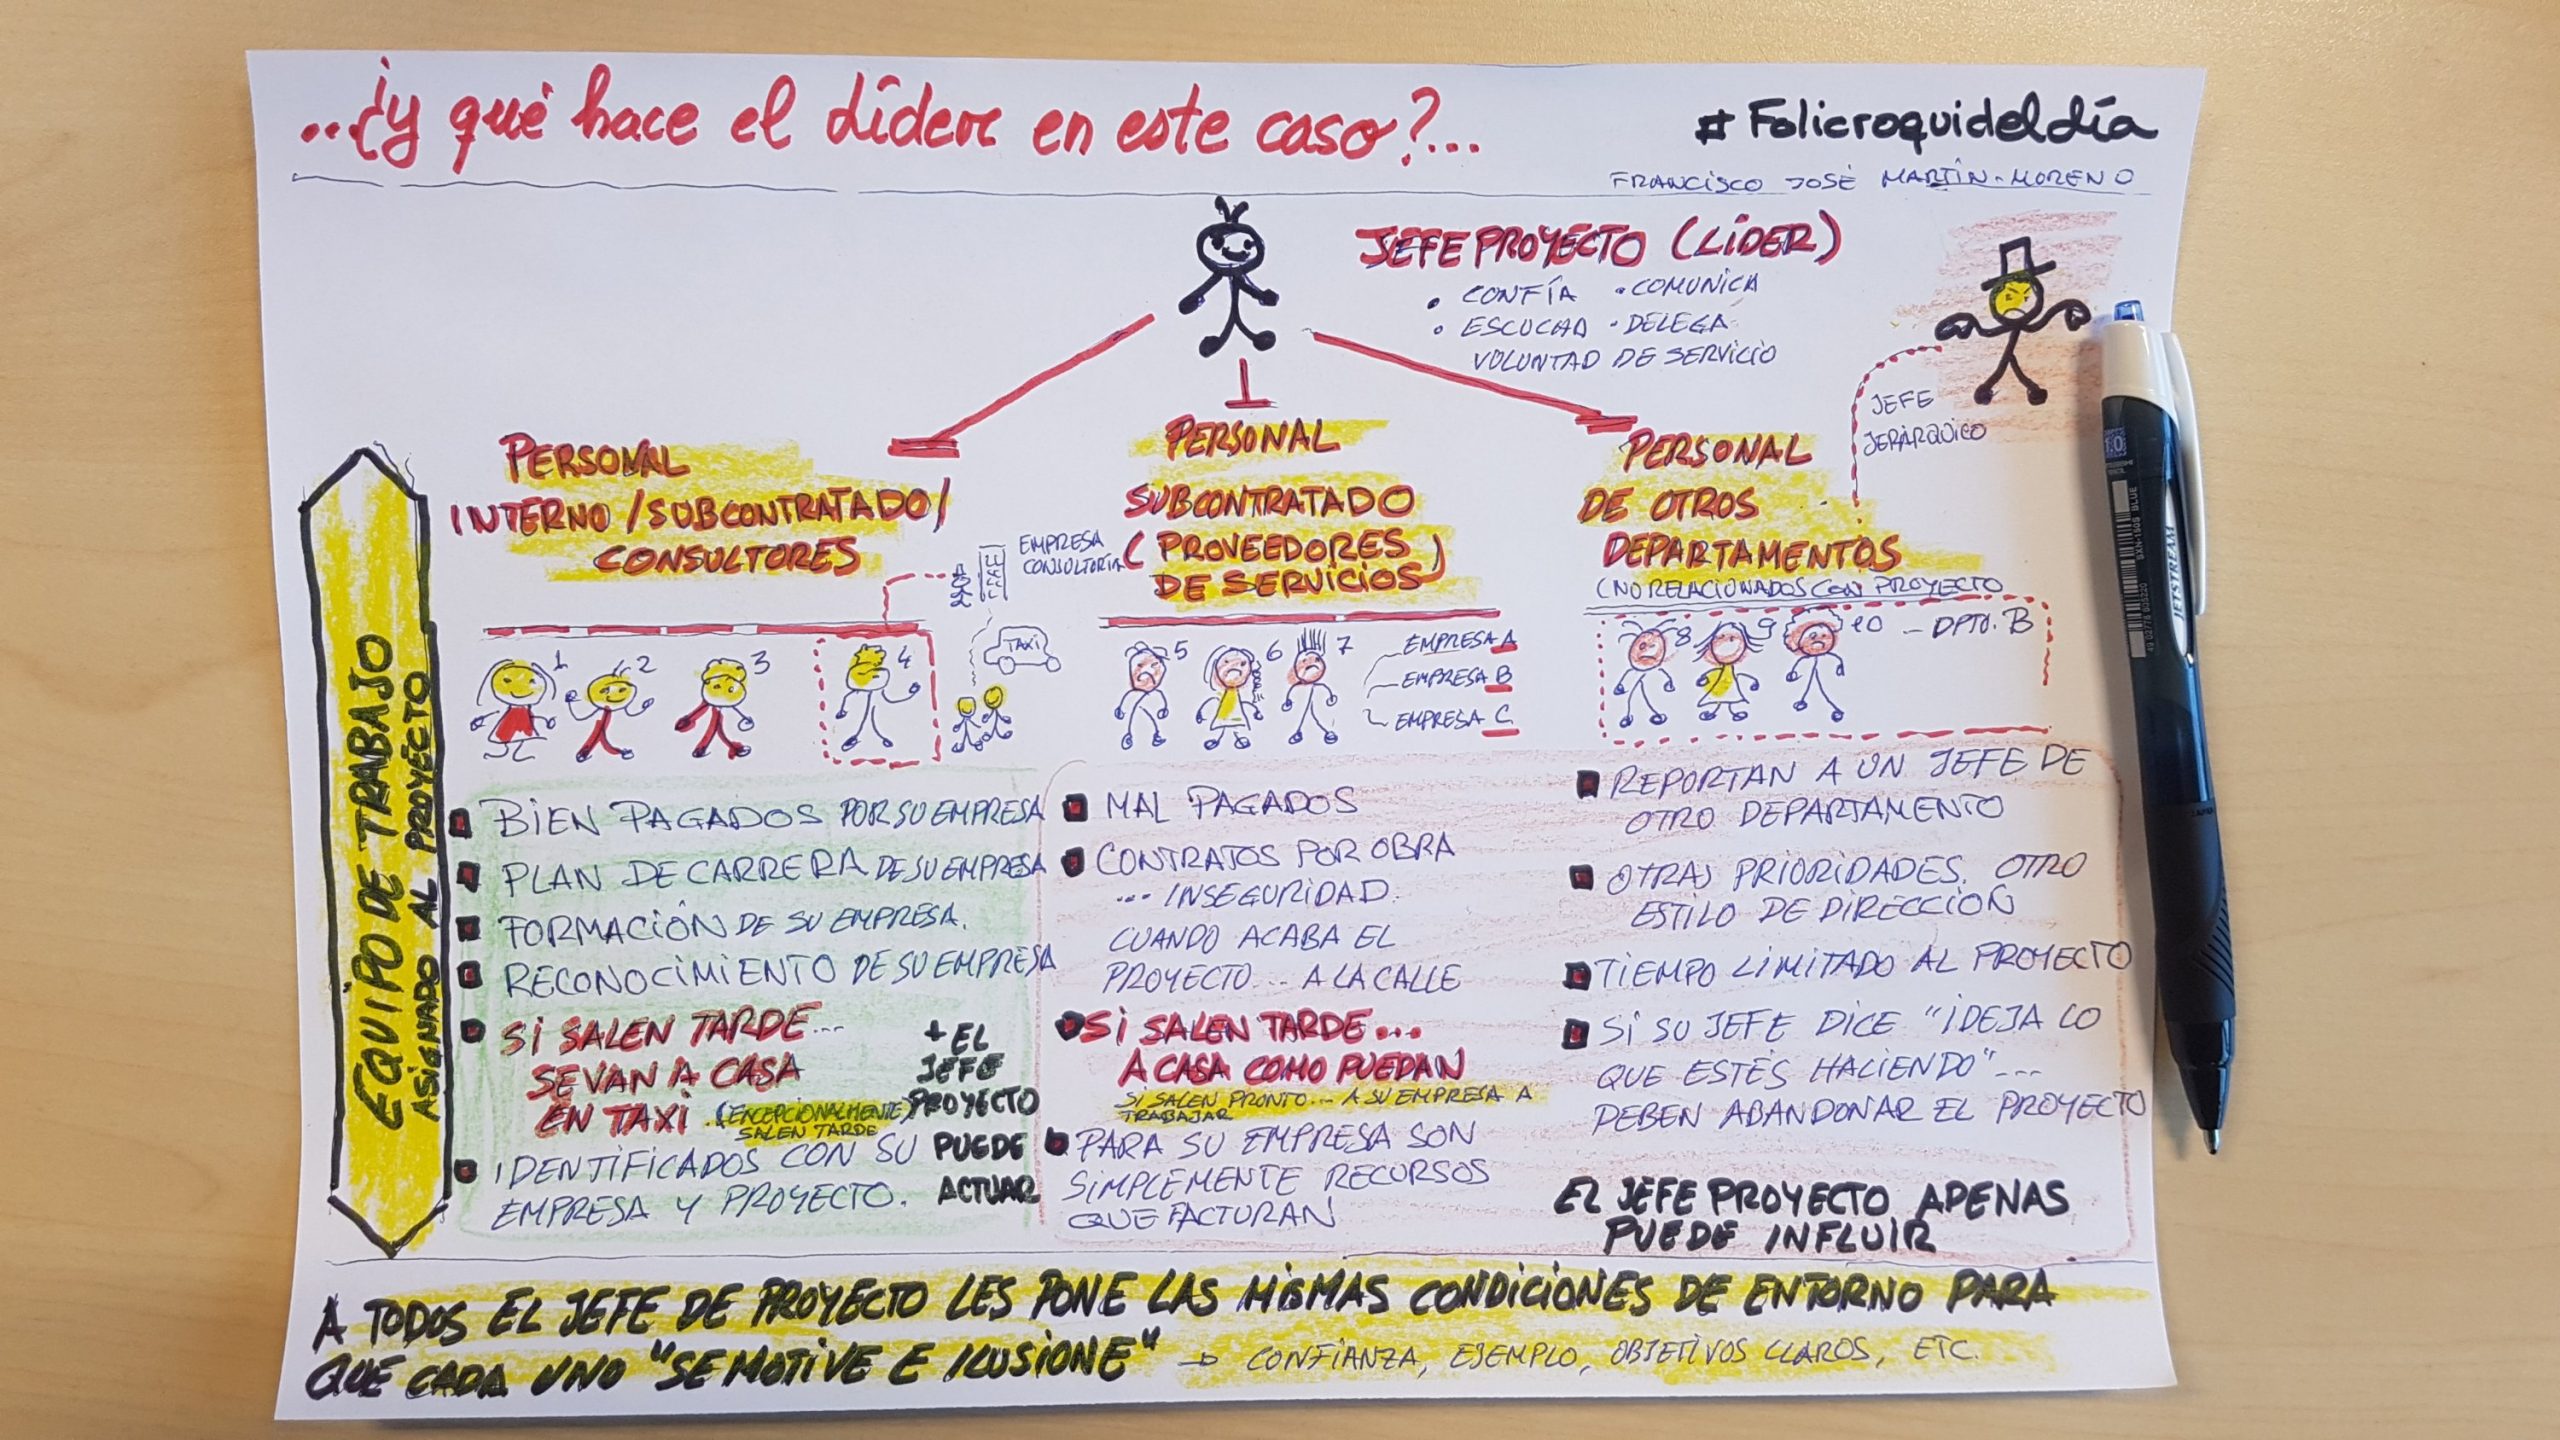 ...¿y qué hace el Líder en este caso?...
#Folicroquideldía
FRANCISCO JOSÉ MARTÍN-MORENO
JEFE PROYECTO (LÍDER)
• CONFÍA • COMUNICA
• ESCUCHA • DELEGA
VOLUNTAD DE SERVICIO
JEFE
JERÁRQUICO
EQUIPO DE TRABAJO
ASIGNADO AL PROYECTO
PERSONAL
INTERNO/SUBCONTRATADO/
CONSULTORES
EMPRESA
CONSULTORÍA
TAXI
1 2 3 4
BIEN PAGADOS POR SU EMPRESA
PLAN DE CARRERA DE SU EMPRESA
FORMACIÓN DE SU EMPRESA.
RECONOCIMIENTO DE SU EMPRESA
SI SALEN TARDE...
SE VAN A CASA
EN TAXI. (EXCEPCIONALMENTE)
SALEN TARDE
IDENTIFICADOS CON SU
EMPRESA Y PROYECTO.
+ EL
JEFE
PROYECTO
PUEDE
ACTUAR
PERSONAL
SUBCONTRATADO
(PROVEEDORES
DE SERVICIOS)
5 6 7
EMPRESA A
EMPRESA B
EMPRESA C
MAL PAGADOS
CONTRATOS POR OBRA
... INSEGURIDAD.
CUANDO ACABA EL
PROYECTO... A LA CALLE
SI SALEN TARDE...
A CASA COMO PUEDAN
SI SALEN PRONTO... A SU EMPRESA A
TRABAJAR
PARA SU EMPRESA SON
SIMPLEMENTE RECURSOS
QUE FACTURAN
PERSONAL
DE OTROS
DEPARTAMENTOS
(NO RELACIONADOS CON PROYECTO
8 9 10 - DPTO. B
REPORTAN A UN JEFE DE
OTRO DEPARTAMENTO
OTRAS PRIORIDADES. OTRO
ESTILO DE DIRECCIÓN
TIEMPO LIMITADO AL PROYECTO
SI SU JEFE DICE "¡DEJA LO
QUE ESTÉS HACIENDO"...
DEBEN ABANDONAR EL PROYECTO
EL JEFE PROYECTO APENAS
PUEDE INFLUIR
A TODOS EL JEFE DE PROYECTO LES PONE LAS MISMAS CONDICIONES DE ENTORNO PARA
QUE CADA UNO "SE MOTIVE E ILUSIONE" → CONFIANZA, EJEMPLO, OBJETIVOS CLAROS, ETC.
1.0
SXN-150S BLUE
JETSTREAM